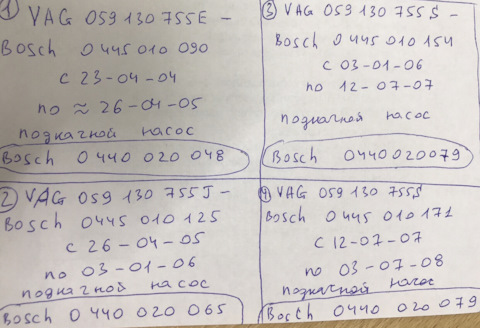 ① VAG 059 130 755E –
Bosch 0 445 010 090
с 23-04-04
по ≈ 26-04-05
подкачной насос
Bosch 0 440 020 048
② VAG 059 130 755J –
Bosch 0445 010 125
с 26-04-05
по 03-01-06
подкачной насос
Bosch 0 440 020 065
③ VAG 059 130 755 S –
Bosch 0 445 010 154
с 03-01-06
по 12-07-07
подкачной насос
Bosch 0440020079
④ VAG 059 130 755S
Bosch 0 445 010 171
с 12-07-07
по 03-07-08
подкачной насос
Bosch 0440 020 079